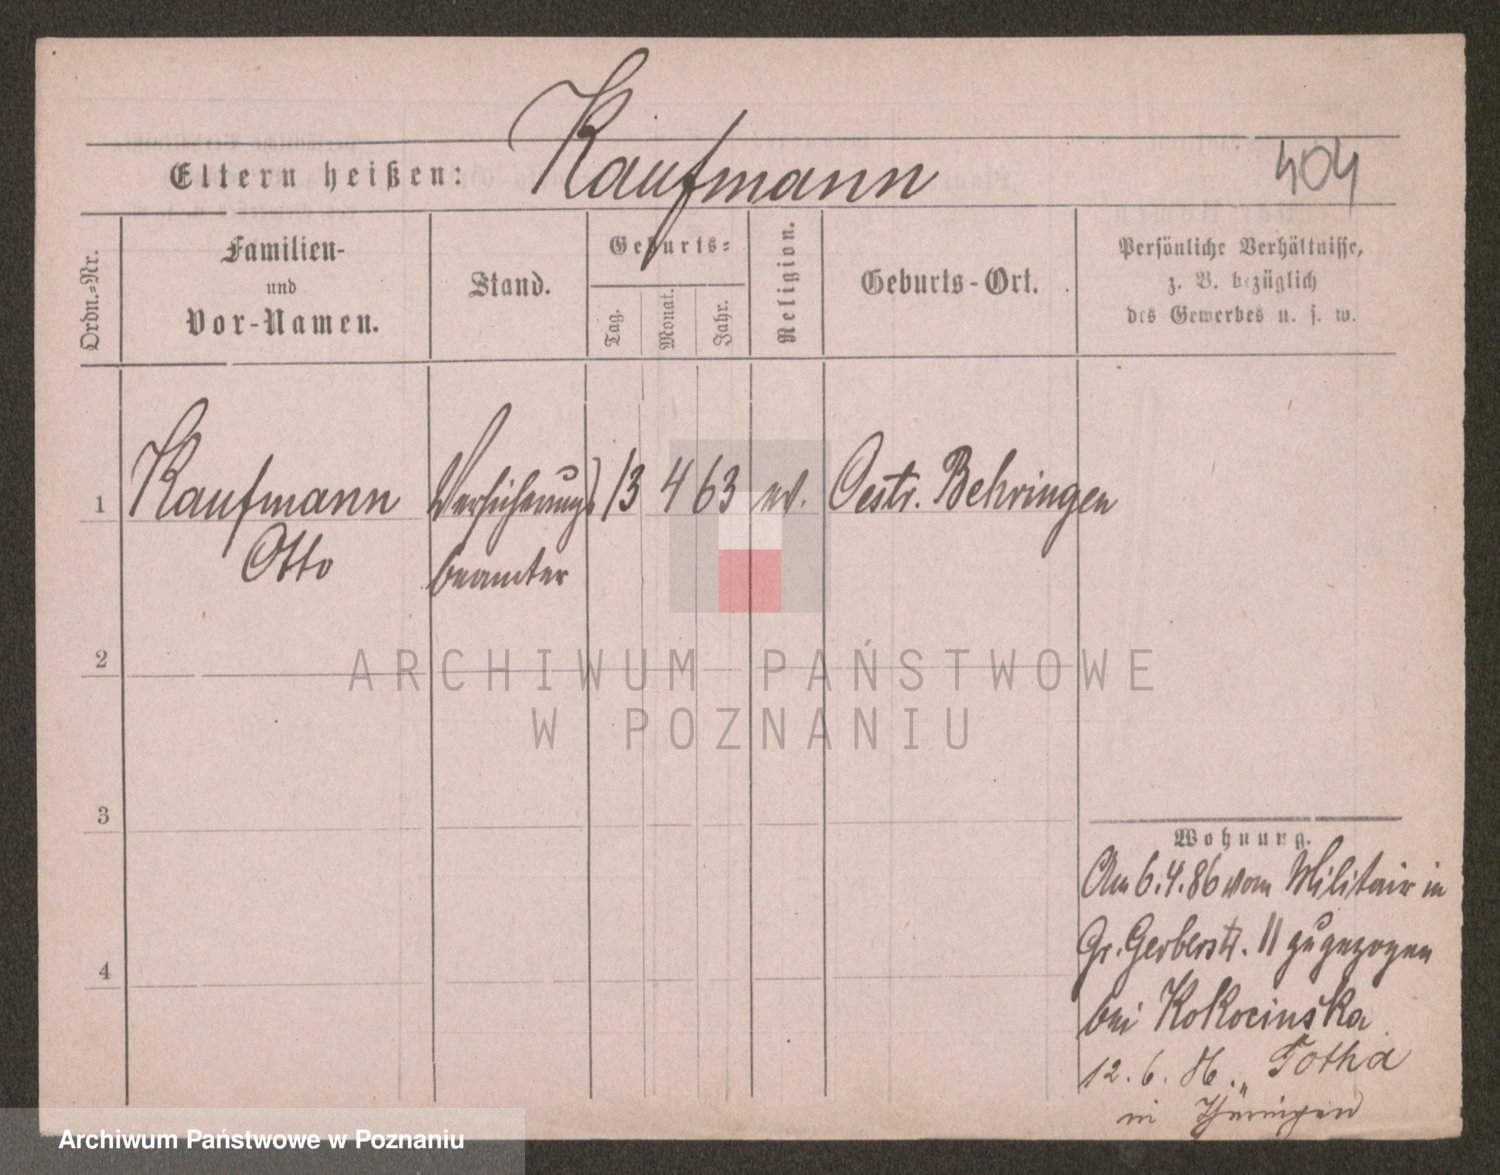 Kaufmann
404
Eltern heißen:
Ordn.-Nr.
Familien-
und
Vor-Namen.
Stand.
Geburts-
Tag.
Monat.
Jahr.
Religion.
Geburts-Ort.
Persönliche Verhältnisse,
z. B. bezüglich
des Gewerbes u. s. w.
1 Kaufmann Versicherungs 13 4 63 ev. Oestr. Behringen
Otto beamter
2
ARCHIWUM PAŃSTWOWE
W POZNANIU
3
Wohnung.
Am 6.4.86 vom Militair in
Gr. Gerberstr. 11 zugezogen
4
bei Kokocinska
12. 6. 86. Gotha
in Thüringen
Archiwum Państwowe w Poznaniu